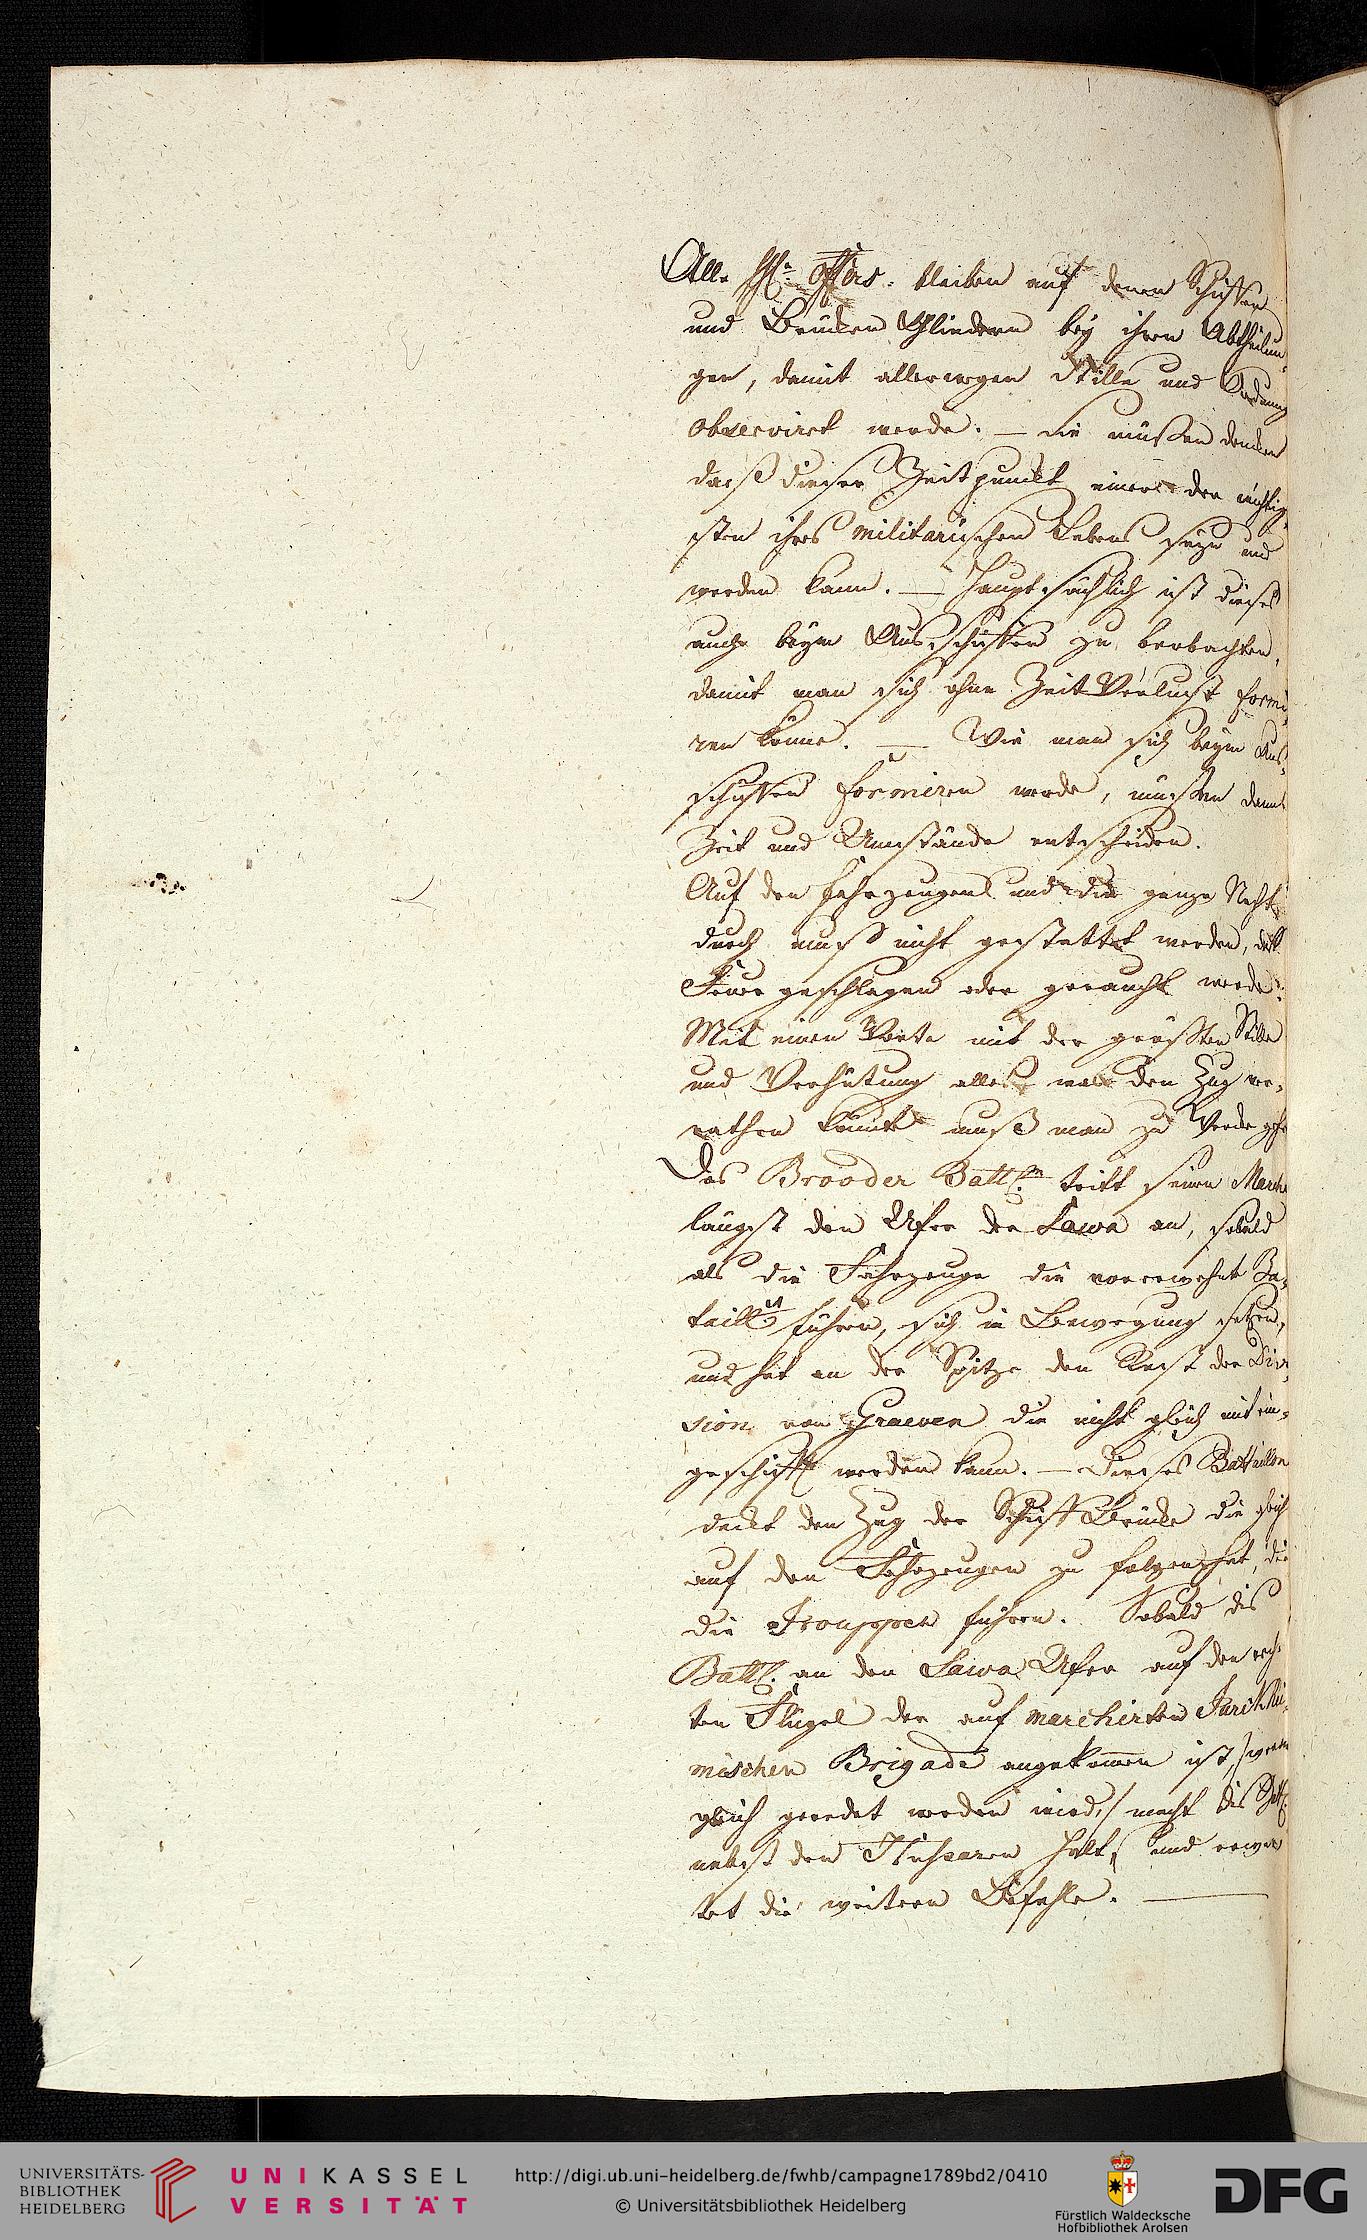 Alle HH. Offrs. bleiben auf denen Schiffen
und Brücken Gliedern bey ihren Abtheilun-
gen, damit allerwegen Stille und Ordnung
observirt werde. — Sie müßen denken
daß dieser Zeitpunckt einer der wichtig-
sten ihres militarischen Lebens seyn und
werden kann. — Hauptsächlich ist dieses
auch beym Ausschiffen zu beobachten,
damit man sich ohne Zeit Verlust formi-
ren könne. — Wie man sich beym Aus-
schiffen formiren werde, müßen dann
Zeit und Umstände entscheiden.
Auf den Fahrzeugen und die ganze Nacht
durch muß nicht gestattet werden, daß
Feuer geschlagen oder geraucht werde.
Mit einen Worte mit der größten Stille
und Verhütung alles was den Zug ver-
rathen könnte muß man zu Werke gehn
Das Brooder Battl. tritt seinen March
längst den Ufer der Sawa an, sobald
als die Fahrzeuge die vorerwehnte Ba-
taills führen, sich in Bewegung setzen,
und hat an der Spitze den Rest der Divi-
sion von Graeven die nicht gleich mit ein-
geschifft werden kann. — Dieses Battaillon
deckt den Zug der Schiff Brücke die gleich
auf den Fahrzeugen zu folgen hat, die
die Trouppen führen. Sobald dis
Battl. an den Sawa Ufer auf den rech-
ten Flügel der auf marchirten Jurikhü-
mischen Brigade angekommen ist, /wovon
gleich geredet werden wird,/ macht dis Battl.
nebst den Husaren Halt, und erwar
tet die weitern Befehle. —
UNIVERSITÄTS-
BIBLIOTHEK
HEIDELBERG
UNIKASSEL
VERSITÄT
http://digi.ub.uni-heidelberg.de/fwhb/campagne1789bd2/0410
© Universitätsbibliothek Heidelberg
Fürstlich Waldecksche
Hofbibliothek Arolsen
DFG